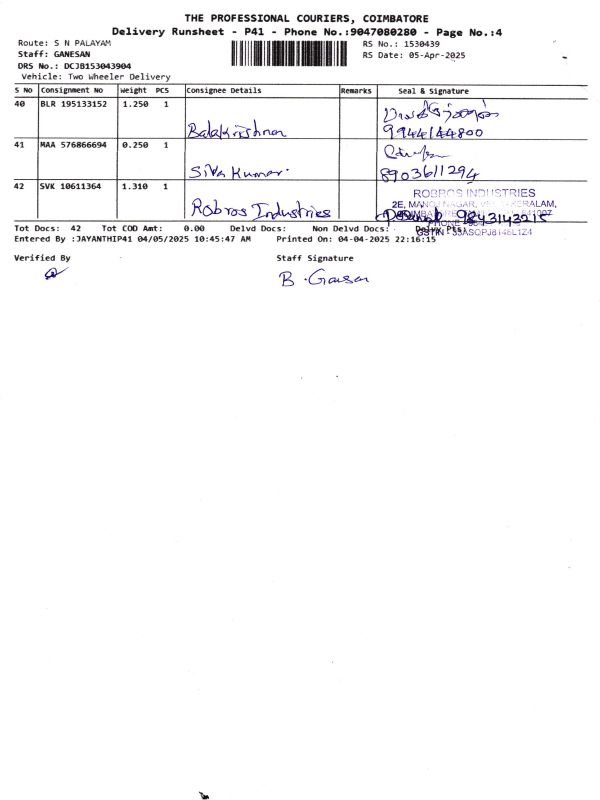 THE PROFESSIONAL COURIERS, COIMBATORE
Delivery Runsheet - P41 - Phone No.:9047080280 - Page No.:4
Route: S N PALAYAM RS No.: 1530439
Staff: GANESAN RS Date: 05-Apr-2025
DRS No.: DCJB153043904
Vehicle: Two Wheeler Delivery
S No Consignment No Weight PCS Consignee Details Remarks Seal & Signature
40 BLR 195133152 1.250 1
Balakrishnan 9944144800
41 MAA 576866694 0.250 1
Siva Kumar. 8903611294
42 SVK 10611364 1.310 1 ROBROS INDUSTRIES
2E, MANOJ NAGAR,
Robros Industries
Tot Docs: 42 Tot COD Amt: 0.00 Delvd Docs: Non Delvd Docs:
Entered By :JAYANTHIP41 04/05/2025 10:45:47 AM Printed On: 04-04-2025 22:16:15
Verified By Staff Signature